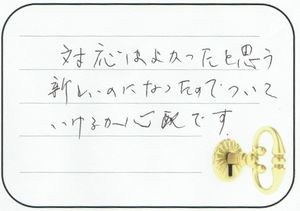 対応はよかったと思う
新しいのになったのでついて
いけるか心配です